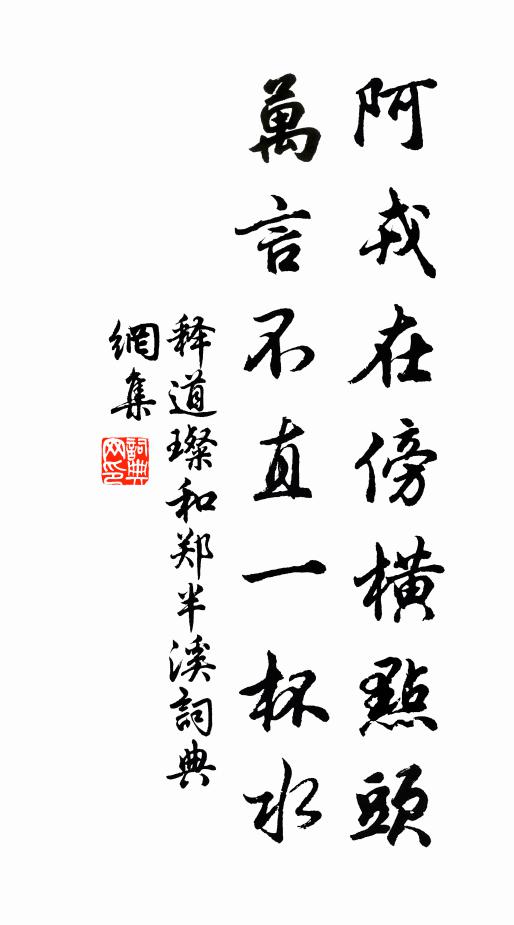 阿戎在傍橫點頭
萬言不直一杯水
释道璨和郑半溪詞典
網集
詞典网印